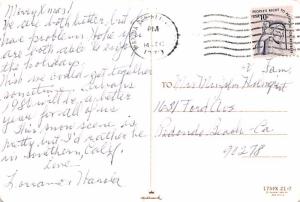 Merry Xmas!
We are both better, but we
have problems. Hope you
are both able to enjoy
the holidays.
Wish we could get together
sometime. Perhaps
1981 will be a better
year for all of us
This snow scene is
pretty but I'd rather be
in Southern, Calif.
Love
Lorraine & Harold
PM
PEOPLE'S RIGHT
10c
& Fam.
TO
Mrs
1631 Ford Ave
Redondo Beach - Ca
90278
Hallmark